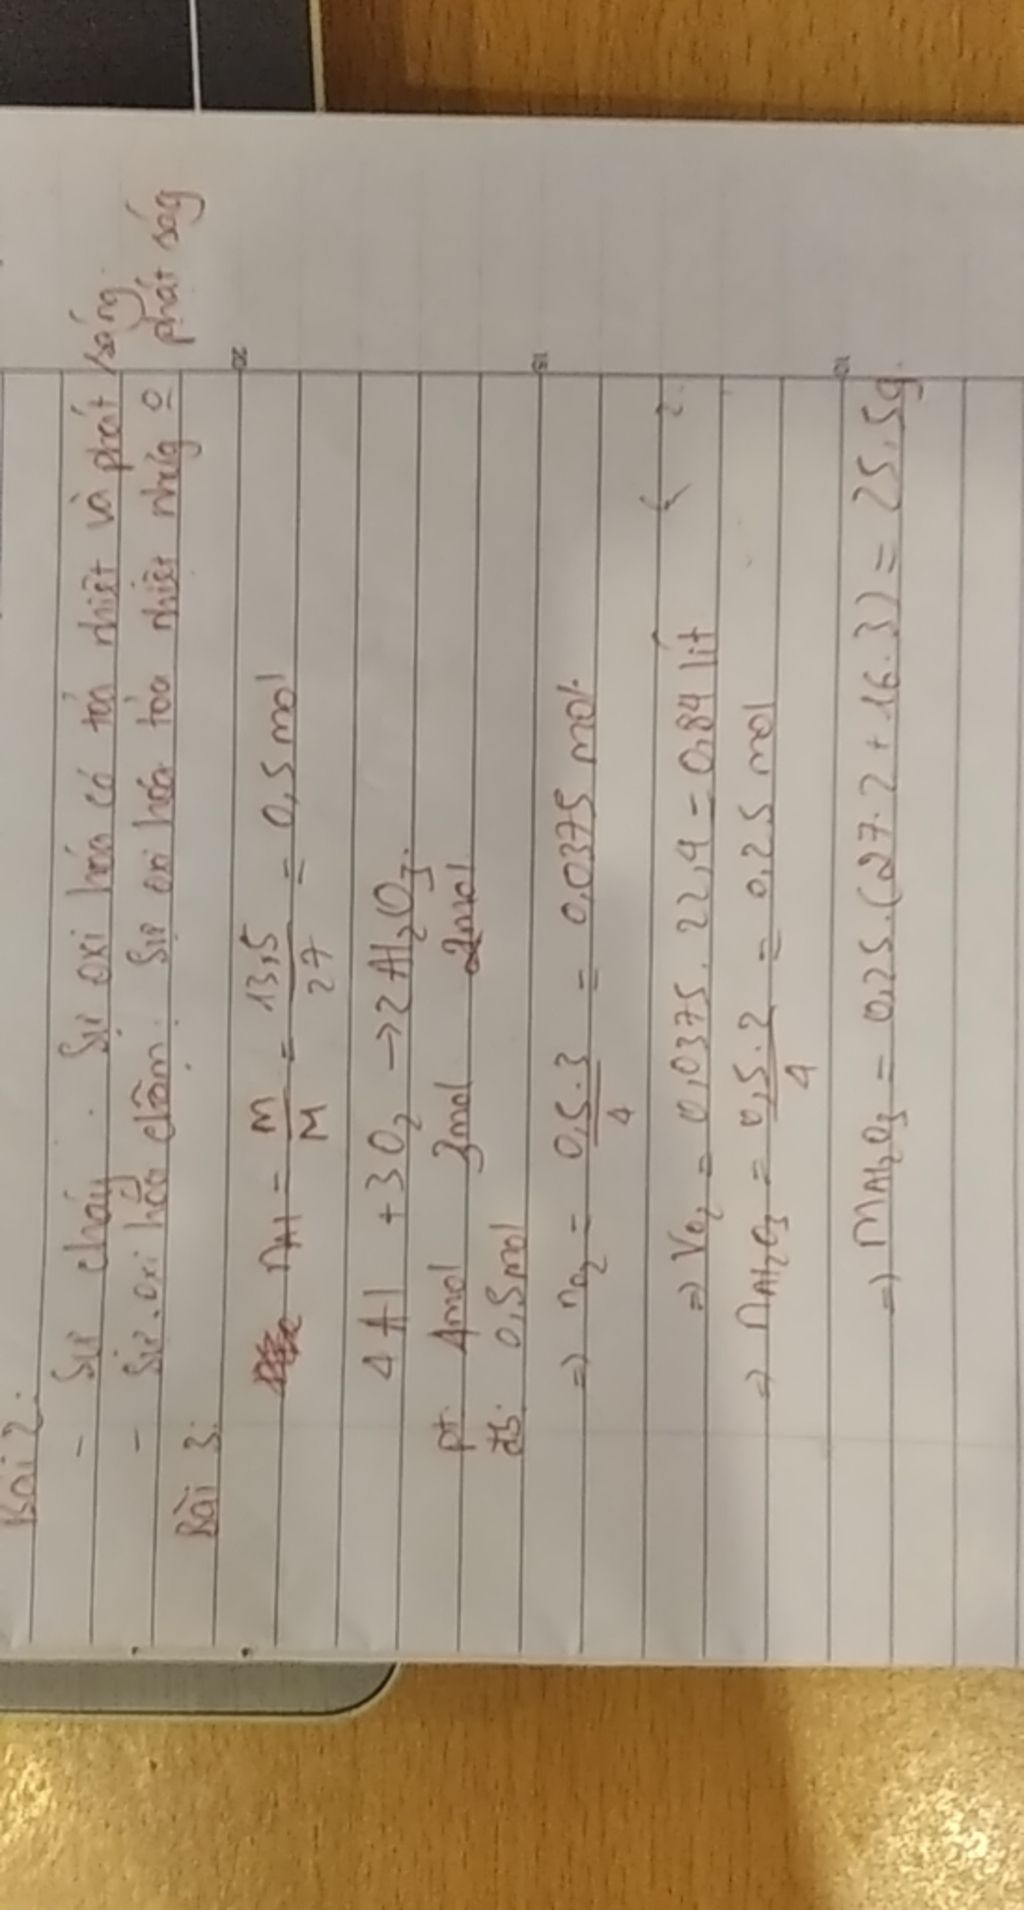 Bài 2:
- Sự cháy: Sự oxi hóa có tỏa nhiệt và phát sáng.
- Sự oxi hóa chậm: Sự oxi hóa tỏa nhiệt nhưg o phát ság
Bài 3:
nAl = m/M = 13,5/27 = 0,5 mol
4Al + 3O₂ → 2Al₂O₃.
pt: 4mol 3mol 2mol
đb: 0,5mol
=> nO₂ = 0,5.3/4 = 0,0375 mol.
=> VO₂ = 0,0375. 22,4 = 0,84 lít
=> nAl₂O₃ = 0,5.2/4 = 0,25 mol
=> mAl₂O₃ = 0,25.(27.2 + 16.3) = 25,5g.
20
15
10